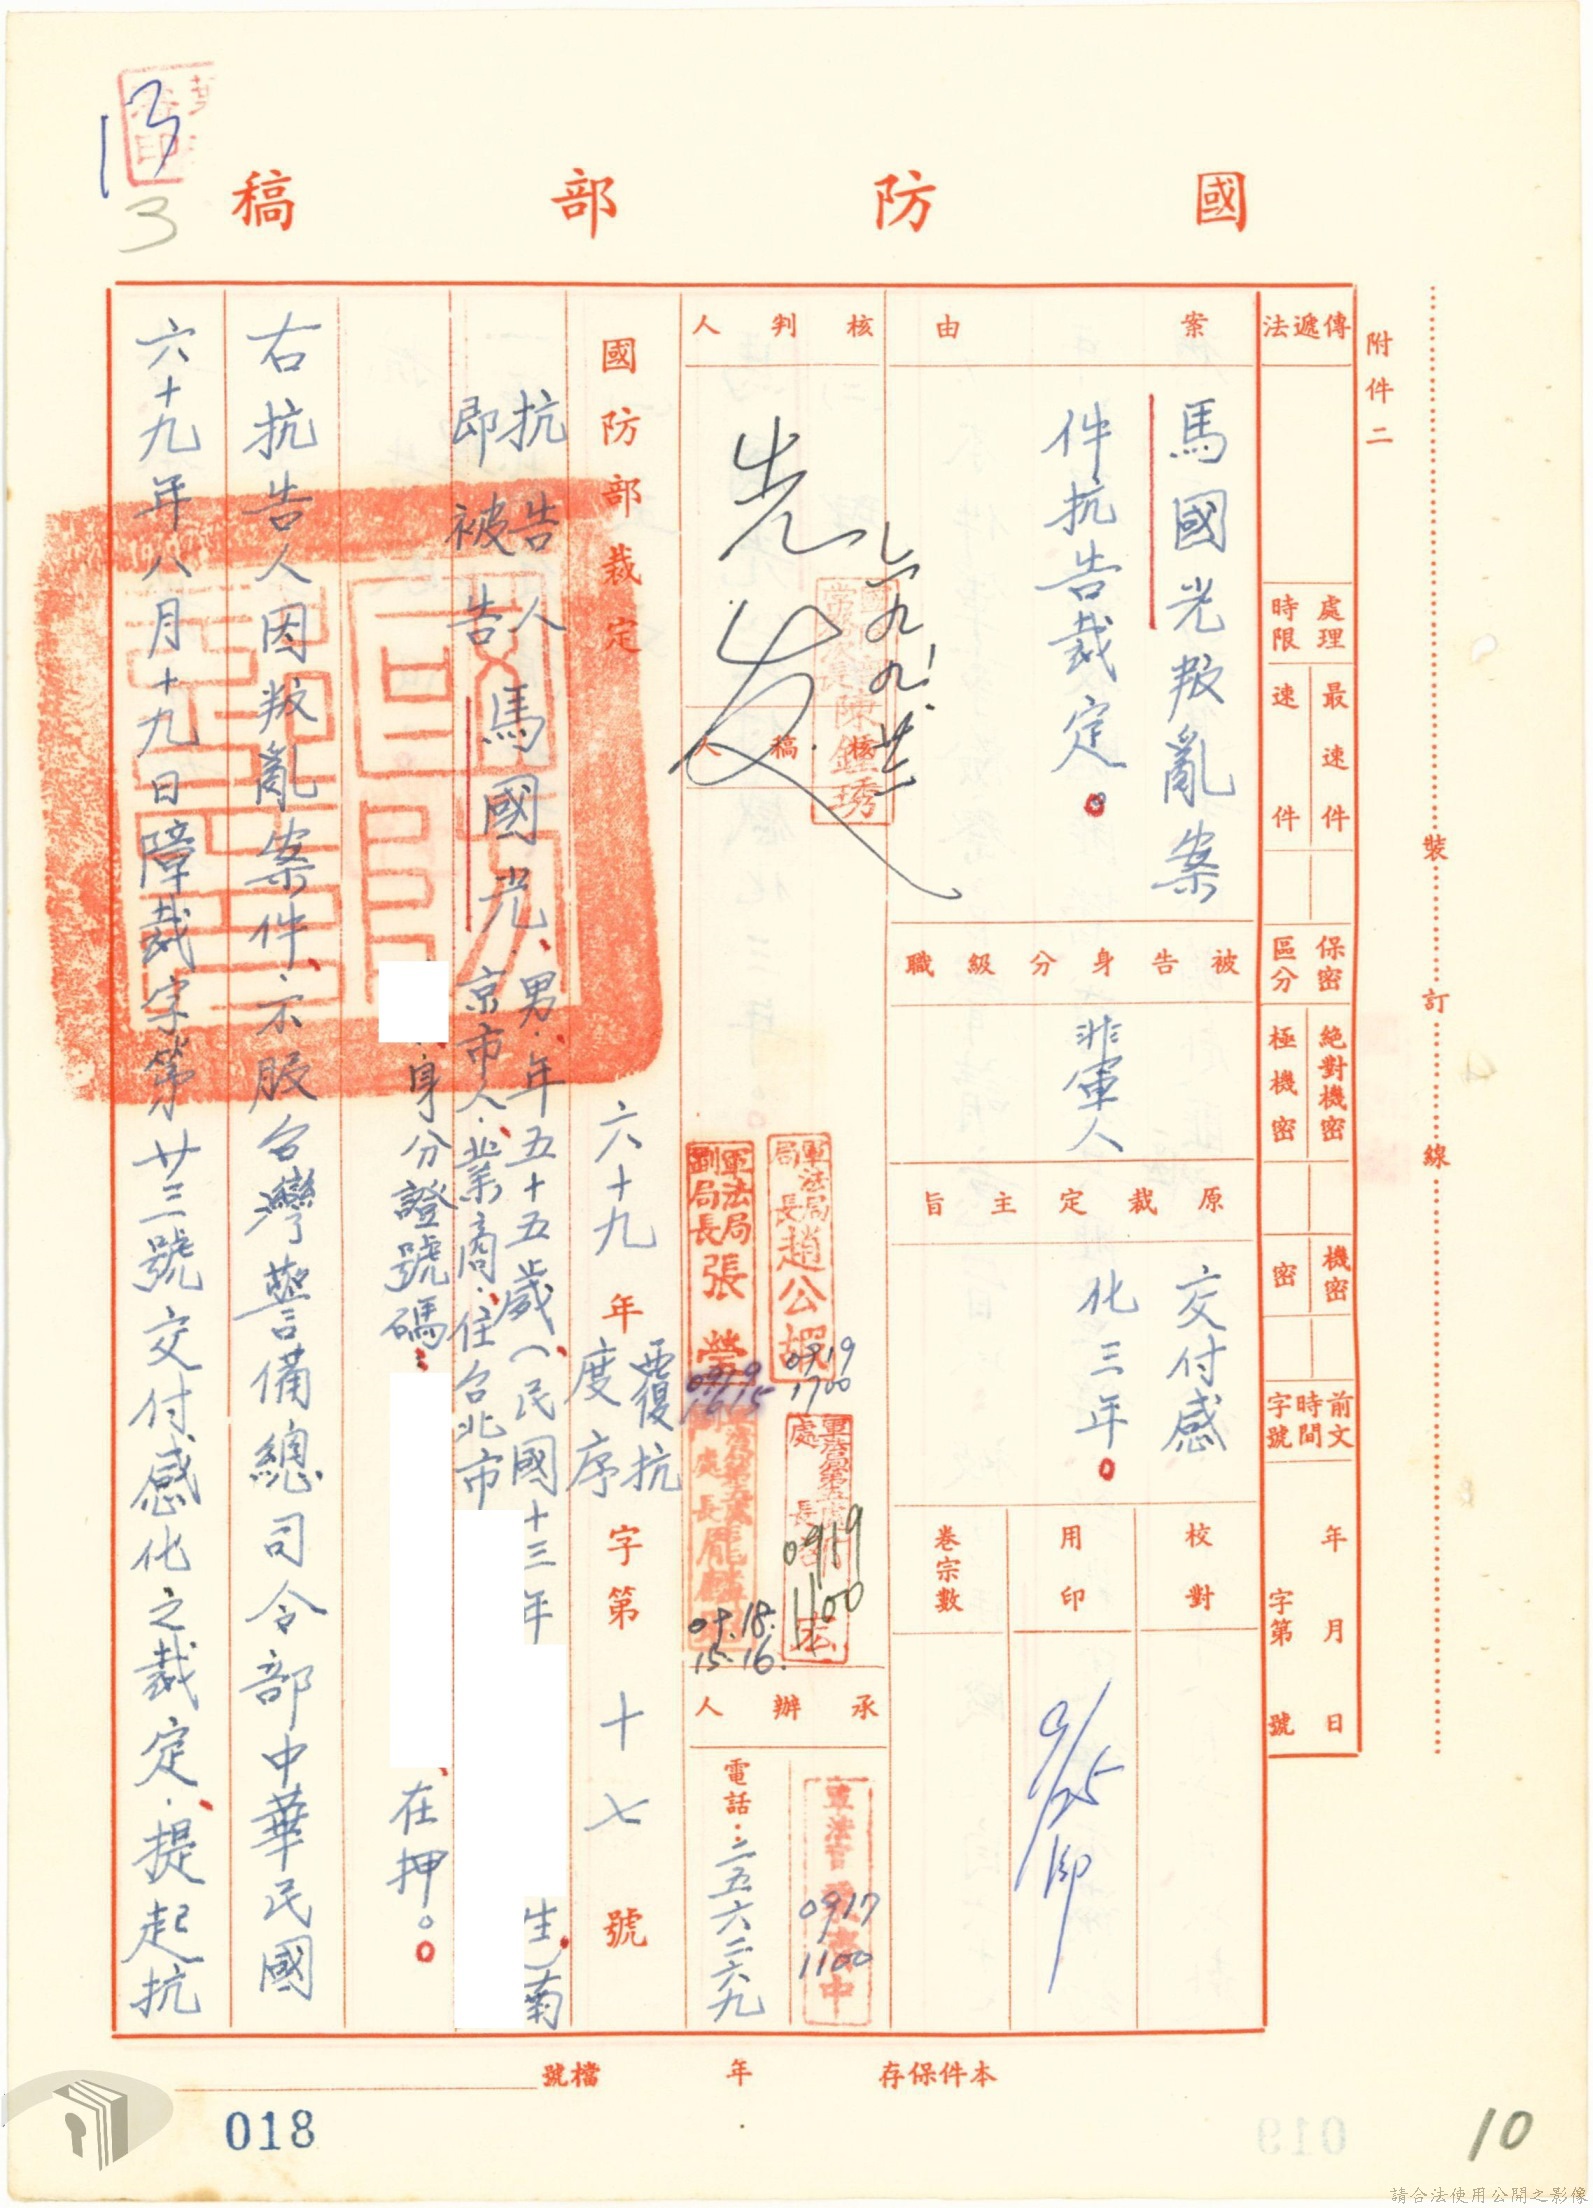 國防部稿
附件二
裝訂線
傳遞法
處理時限
最速件
速件
保密區分
絕對機密
極機密
機密
密
前文時間字號
年月日
字第號
案由
馬國光叛亂案
件抗告裁定。
被告身分級職
非軍人
原裁定主旨
交付感
化三年。
校對
用印
9/25印
卷宗數
核判人
核稿人
陳鍾琇
軍法局局長趙公嘏
0919
1700
軍法局副局長張
0919
1615
0919
1100
09.18.
15.16.
承辦人
0917
1100
電話：二五六二六九
國防部裁定
六十九年度覆抗序字第十七號
抗告人
即被告
馬國光、男、年五十五歲（民國十三年
生）南
京市人、業商、住台北市
身分證號碼：
在押。
右抗告人因叛亂案件、不服台灣警備總司令部中華民國
六十九年八月十九日障裁字第廿三號交付感化之裁定、提起抗
本件保存
年
檔號
018
10
13
3
請合法使用公開之影像